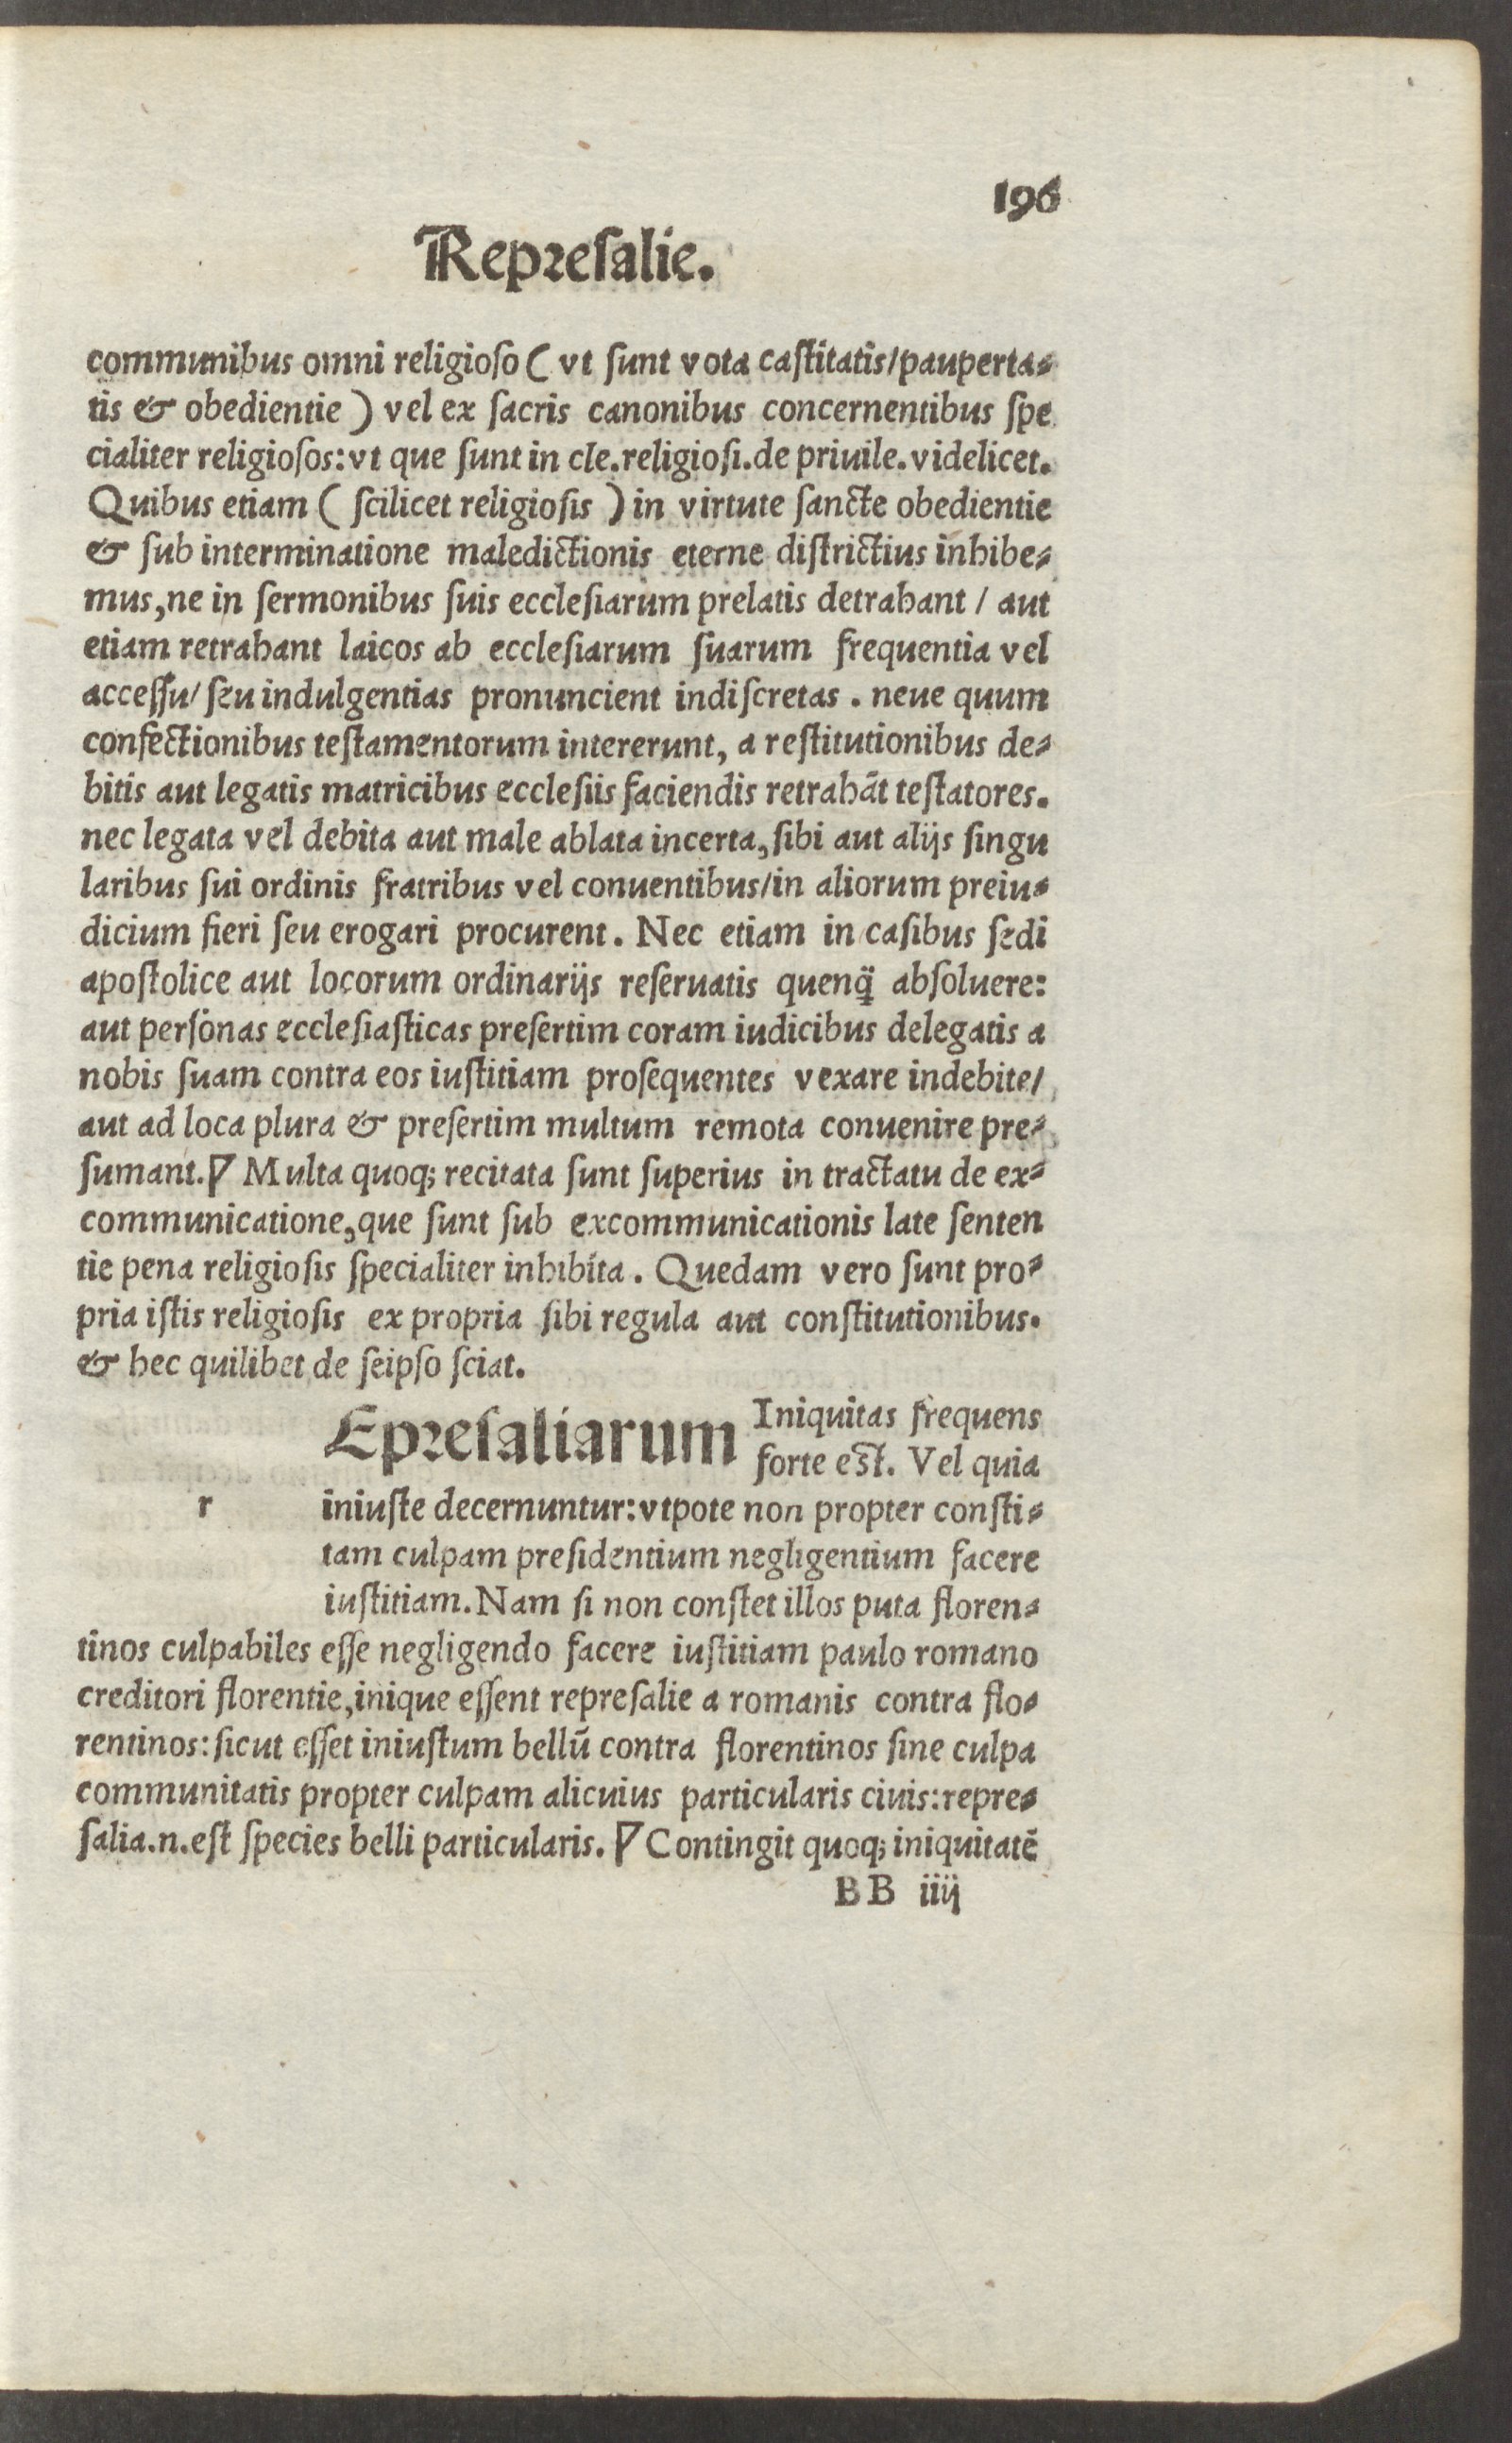 196
Repꝛeſalie.
communibus omni religioſo ( vt ſunt vota caſtitatis/pauperta⸗
tis & obedientie ) vel ex ſacris canonibus concernentibus ſpe
cialiter religioſos: vt que ſunt in cle.religioſi.de priuile.videlicet.
Quibus etiam ( ſcilicet religioſis ) in virtute ſancte obedientie
& ſub interminatione maledictionis eterne diſtrictius inhibe⸗
mus,ne in ſermonibus ſuis eccleſiarum prelatis detrahant / aut
etiam retrahant laicos ab eccleſiarum ſuarum frequentia vel
acceſſu/ ſeu indulgentias pronuncient indiſcretas . neue quum
confectionibus teſtamentorum intererunt, a reſtitutionibus de⸗
bitis aut legatis matricibus eccleſiis faciendis retrahāt teſtatores.
nec legata vel debita aut male ablata incerta, ſibi aut alijs ſingu
laribus ſui ordinis fratribus vel conuentibus/in aliorum preiu⸗
dicium fieri ſeu erogari procurent. Nec etiam in caſibus ſedi
apoſtolice aut locorum ordinarijs reſeruatis quenq̄ abſoluere:
aut perſonas eccleſiaſticas preſertim coram iudicibus delegatis a
nobis ſuam contra eos iuſtitiam proſequentes vexare indebite/
aut ad loca plura & preſertim multum remota conuenire pre⸗
ſumant.∇ Multa quoq; recitata ſunt ſuperius in tractatu de ex⸗
communicatione,que ſunt ſub excommunicationis late ſenten
tie pena religioſis ſpecialiter inhibita. Quedam vero ſunt pro⸗
pria iſtis religioſis ex propria ſibi regula aut conſtitutionibus.
& hec quilibet de ſeipſo ſciat.
Epꝛeſaliarum Iniquitas frequens
forte eſt. Vel quia
r iniuſte decernuntur: vtpote non propter conſti⸗
tam culpam preſidentium negligentium facere
iuſtitiam. Nam ſi non conſtet illos puta floren⸗
tinos culpabiles eſſe negligendo facere iuſtitiam paulo romano
creditori florentie,inique eſſent repreſalie a romanis contra flo⸗
rentinos: ſicut eſſet iniuſtum bellū contra florentinos ſine culpa
communitatis propter culpam alicuius particularis ciuis: repre⸗
ſalia.n.eſt ſpecies belli particularis. ∇ Contingit quoq; iniquitatē
BB iiij